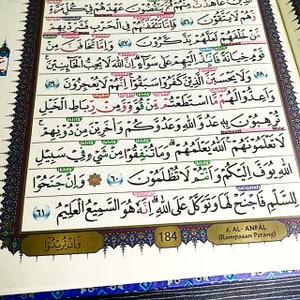 الَّذِينَ عَاهَدْتَ مِنْهُمْ ثُمَّ يَنْقُضُونَ عَهْدَهُمْ فِي كُلِّ مَرَّةٍ
وَهُمْ لَا يَتَّقُونَ ﴿٥٦﴾ فَإِمَّا تَثْقَفَنَّهُمْ فِي الْحَرْبِ فَشَرِّدْ بِهِمْ
مَنْ خَلْفَهُمْ لَعَلَّهُمْ يَذَّكَّرُونَ ﴿٥٧﴾ وَإِمَّا تَخَافَنَّ مِنْ
قَوْمٍ خِيَانَةً فَانْبِذْ إِلَيْهِمْ عَلَىٰ سَوَاءٍ إِنَّ اللَّهَ لَا يُحِبُّ الْخَائِنِينَ
﴿٥٨﴾ وَلَا يَحْسَبَنَّ الَّذِينَ كَفَرُوا سَبَقُوا إِنَّهُمْ لَا يُعْجِزُونَ ﴿٥٩﴾
وَأَعِدُّوا لَهُمْ مَا اسْتَطَعْتُمْ مِنْ قُوَّةٍ وَمِنْ رِبَاطِ الْخَيْلِ
تُرْهِبُونَ بِهِ عَدُوَّ اللَّهِ وَعَدُوَّكُمْ وَآخَرِينَ مِنْ دُونِهِمْ
لَا تَعْلَمُونَهُمُ اللَّهُ يَعْلَمُهُمْ وَمَا تُنْفِقُوا مِنْ شَيْءٍ فِي سَبِيلِ
اللَّهِ يُوَفَّ إِلَيْكُمْ وَأَنْتُمْ لَا تُظْلَمُونَ ﴿٦٠﴾ وَإِنْ جَنَحُوا
لِلسَّلْمِ فَاجْنَحْ لَهَا وَتَوَكَّلْ عَلَى اللَّهِ إِنَّهُ هُوَ السَّمِيعُ الْعَلِيمُ ﴿٦١﴾
وَإِنْ يُرِيدُوا
184
8. AL- ANFAL
(Rampasan Perang)